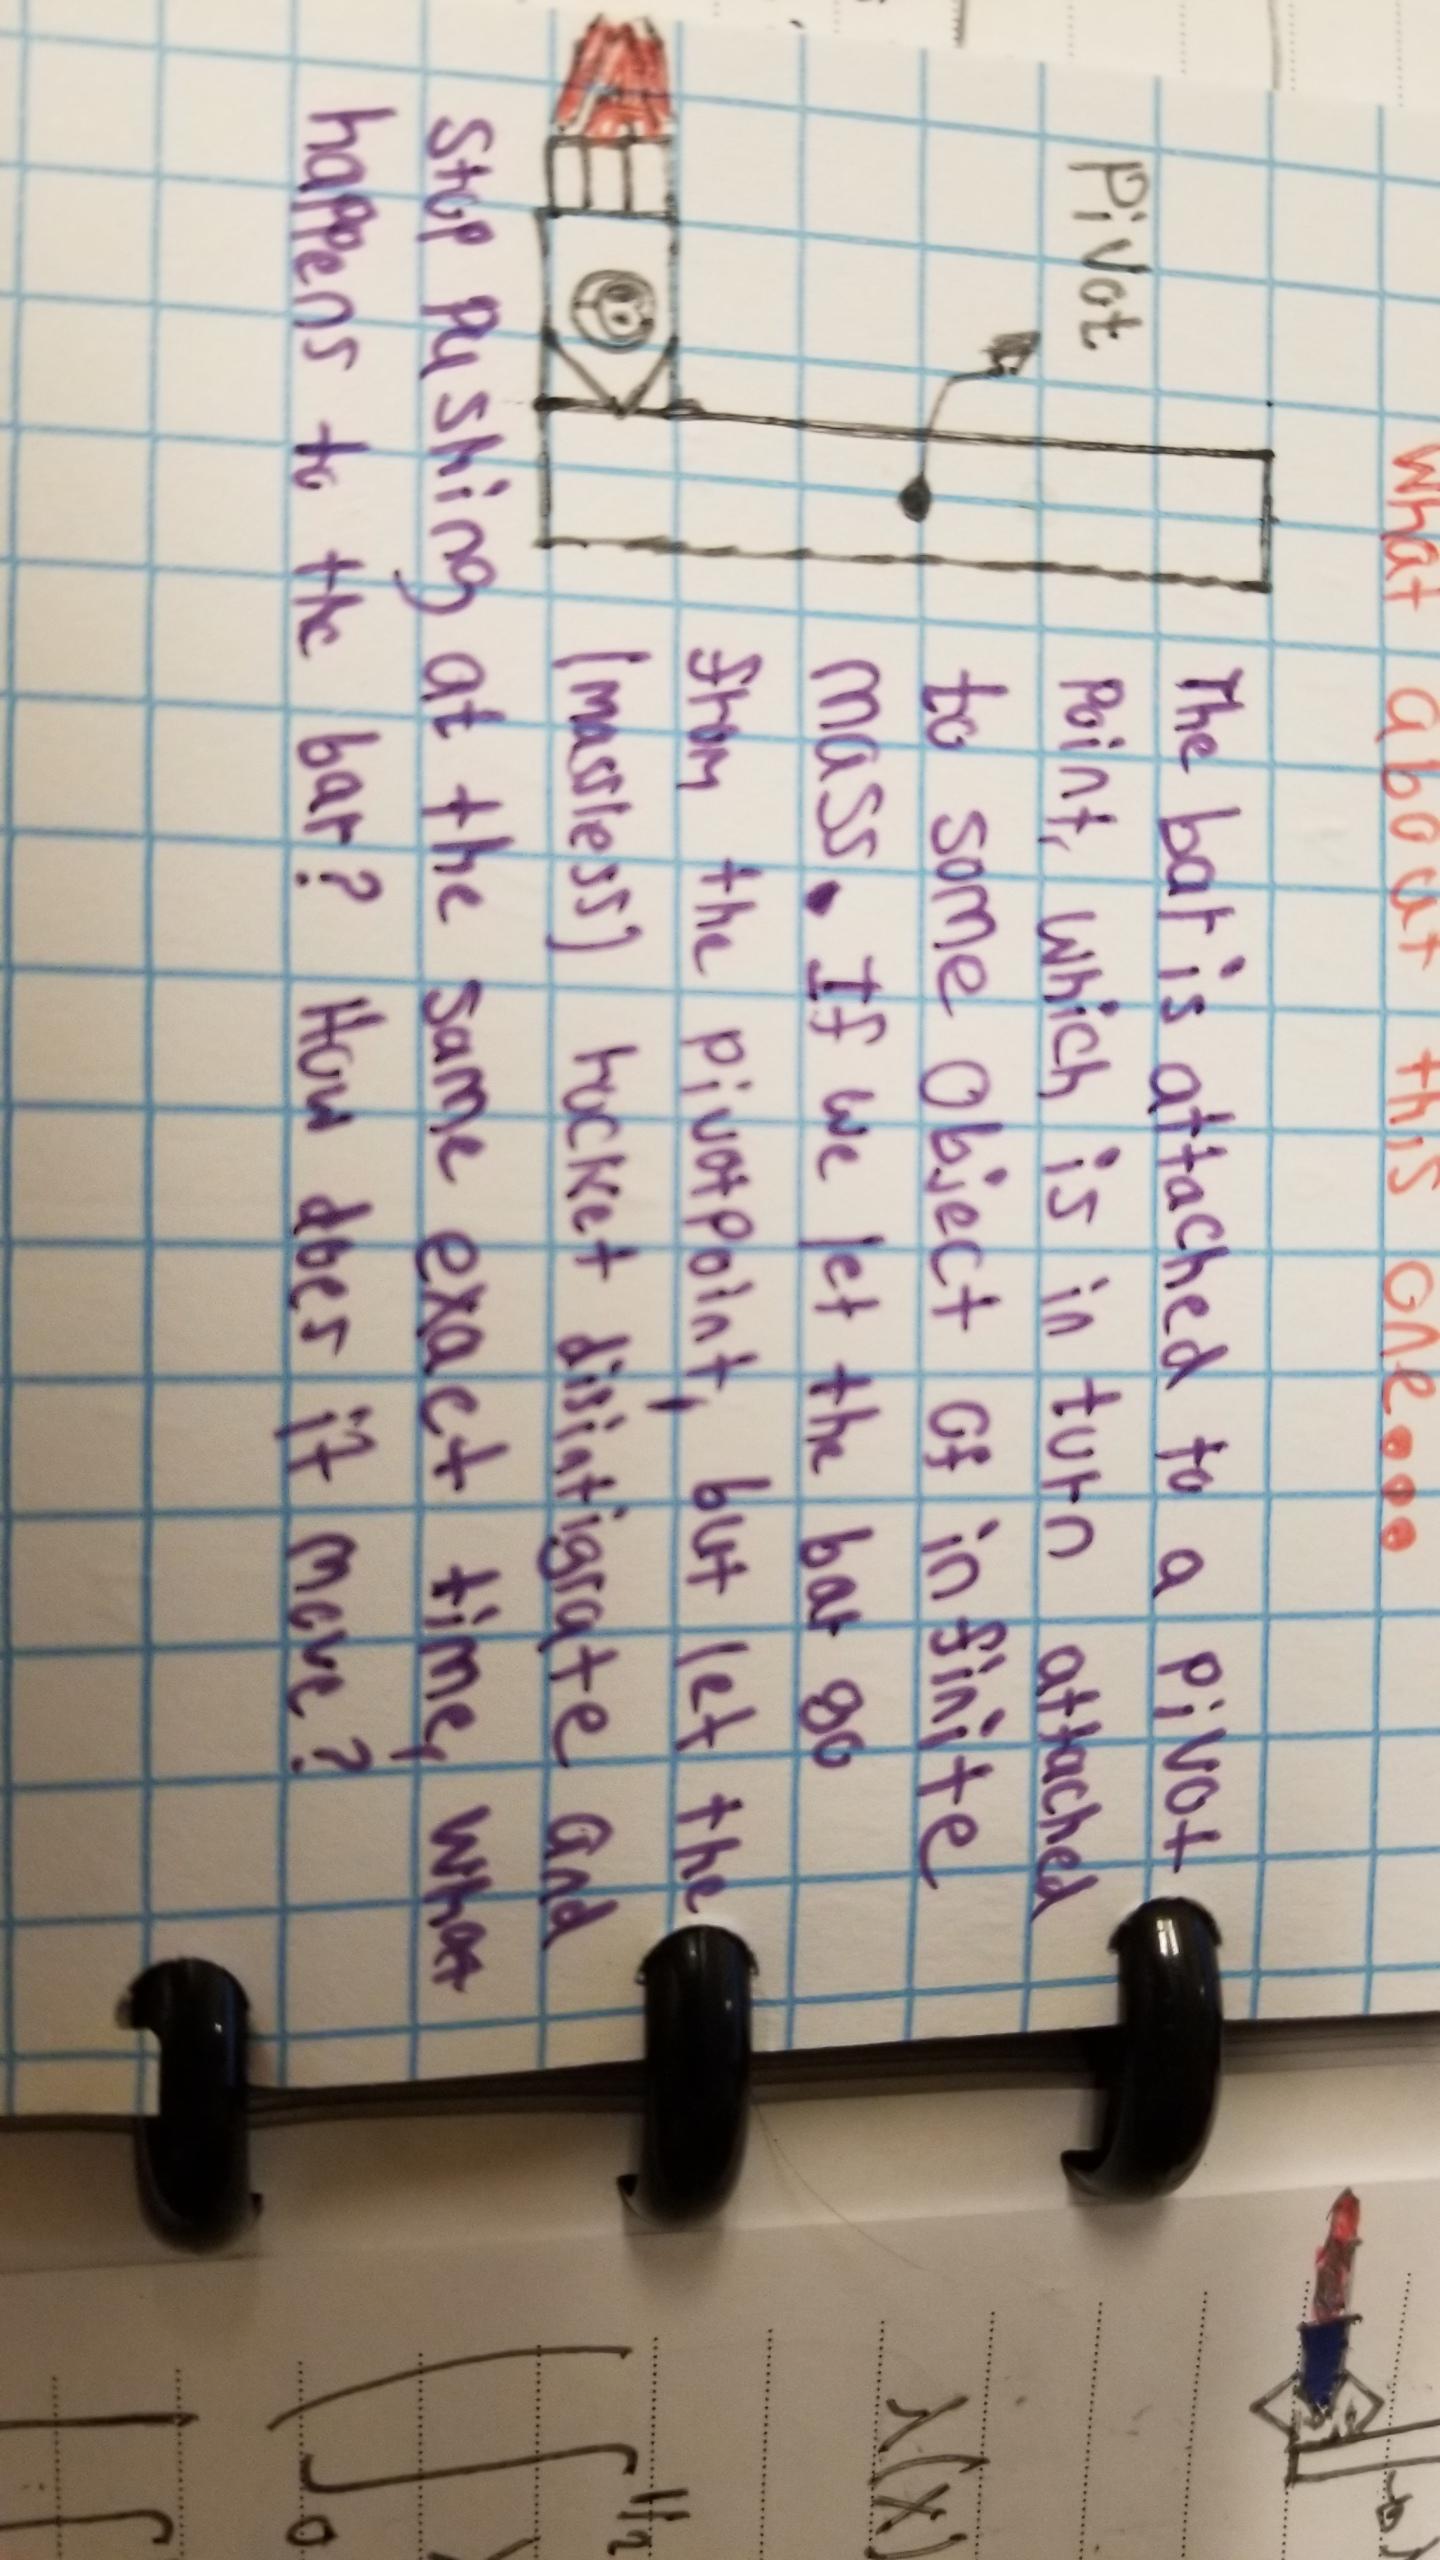 What about this one...
Pivot
The bar is attached to a pivot
point, which is in turn attached
to some object of infinite
mass. If we let the bar go
from the pivotpoint, but let the
(massless) rocket disintigrate and
stop pushing at the same exact time, what
happens to the bar? How does it move?
λ(x)
1/2
0